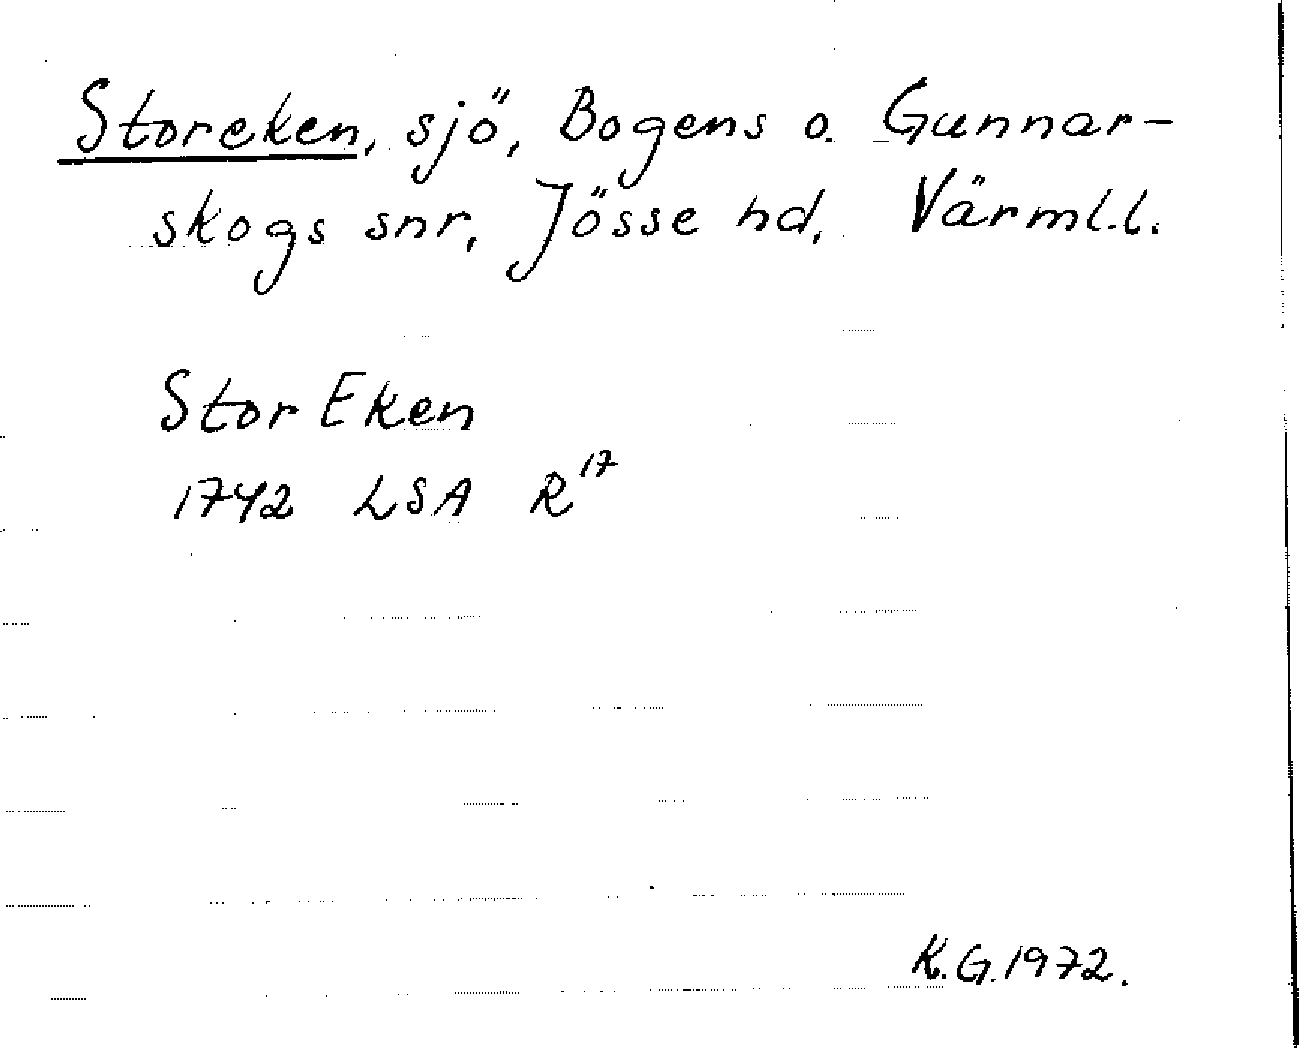 Storeken, sjö, Bogens o. Gunnar-
skogs snr, Jösse hd, Värml.l.
Stor Eken
1742 LSA R17
K.G.1972.